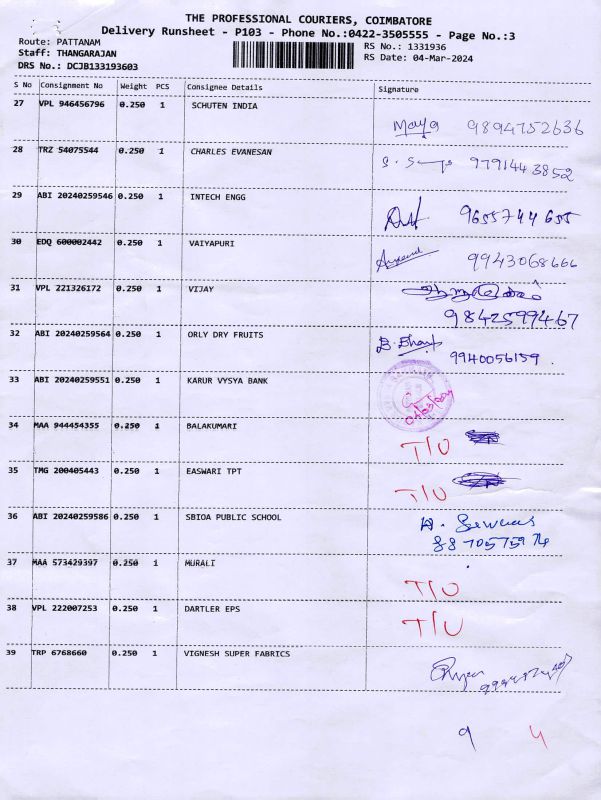 THE PROFESSIONAL COURIERS, COIMBATORE
Delivery Runsheet - P103 - Phone No.:0422-3505555 - Page No.:3
Route: PATTANAM RS No.: 1331936
Staff: THANGARAJAN RS Date: 04-Mar-2024
DRS No.: DCJB133193603
S No Consignment No Weight PCS Consignee Details Signature
27 VPL 946456796 0.250 1 SCHUTEN INDIA
Maya 9894752636
28 TRZ 54075544 0.250 1 CHARLES EVANESAN
9791443852
29 ABI 20240259546 0.250 1 INTECH ENGG
9655744655
30 EDQ 600002442 0.250 1 VAIYAPURI
9943068666
31 VPL 221326172 0.250 1 VIJAY
9842599467
32 ABI 20240259564 0.250 1 ORLY DRY FRUITS
9940056159.
33 ABI 20240259551 0.250 1 KARUR VYSYA BANK
34 MAA 944454355 0.250 1 BALAKUMARI
T/U
35 TMG 200405443 0.250 1 EASWARI TPT
T/U
36 ABI 20240259586 0.250 1 SBIOA PUBLIC SCHOOL
8870575974
37 MAA 573429397 0.250 1 MURALI
T/U
38 VPL 222007253 0.250 1 DARTLER EPS
T/U
39 TRP 6768660 0.250 1 VIGNESH SUPER FABRICS
9 4